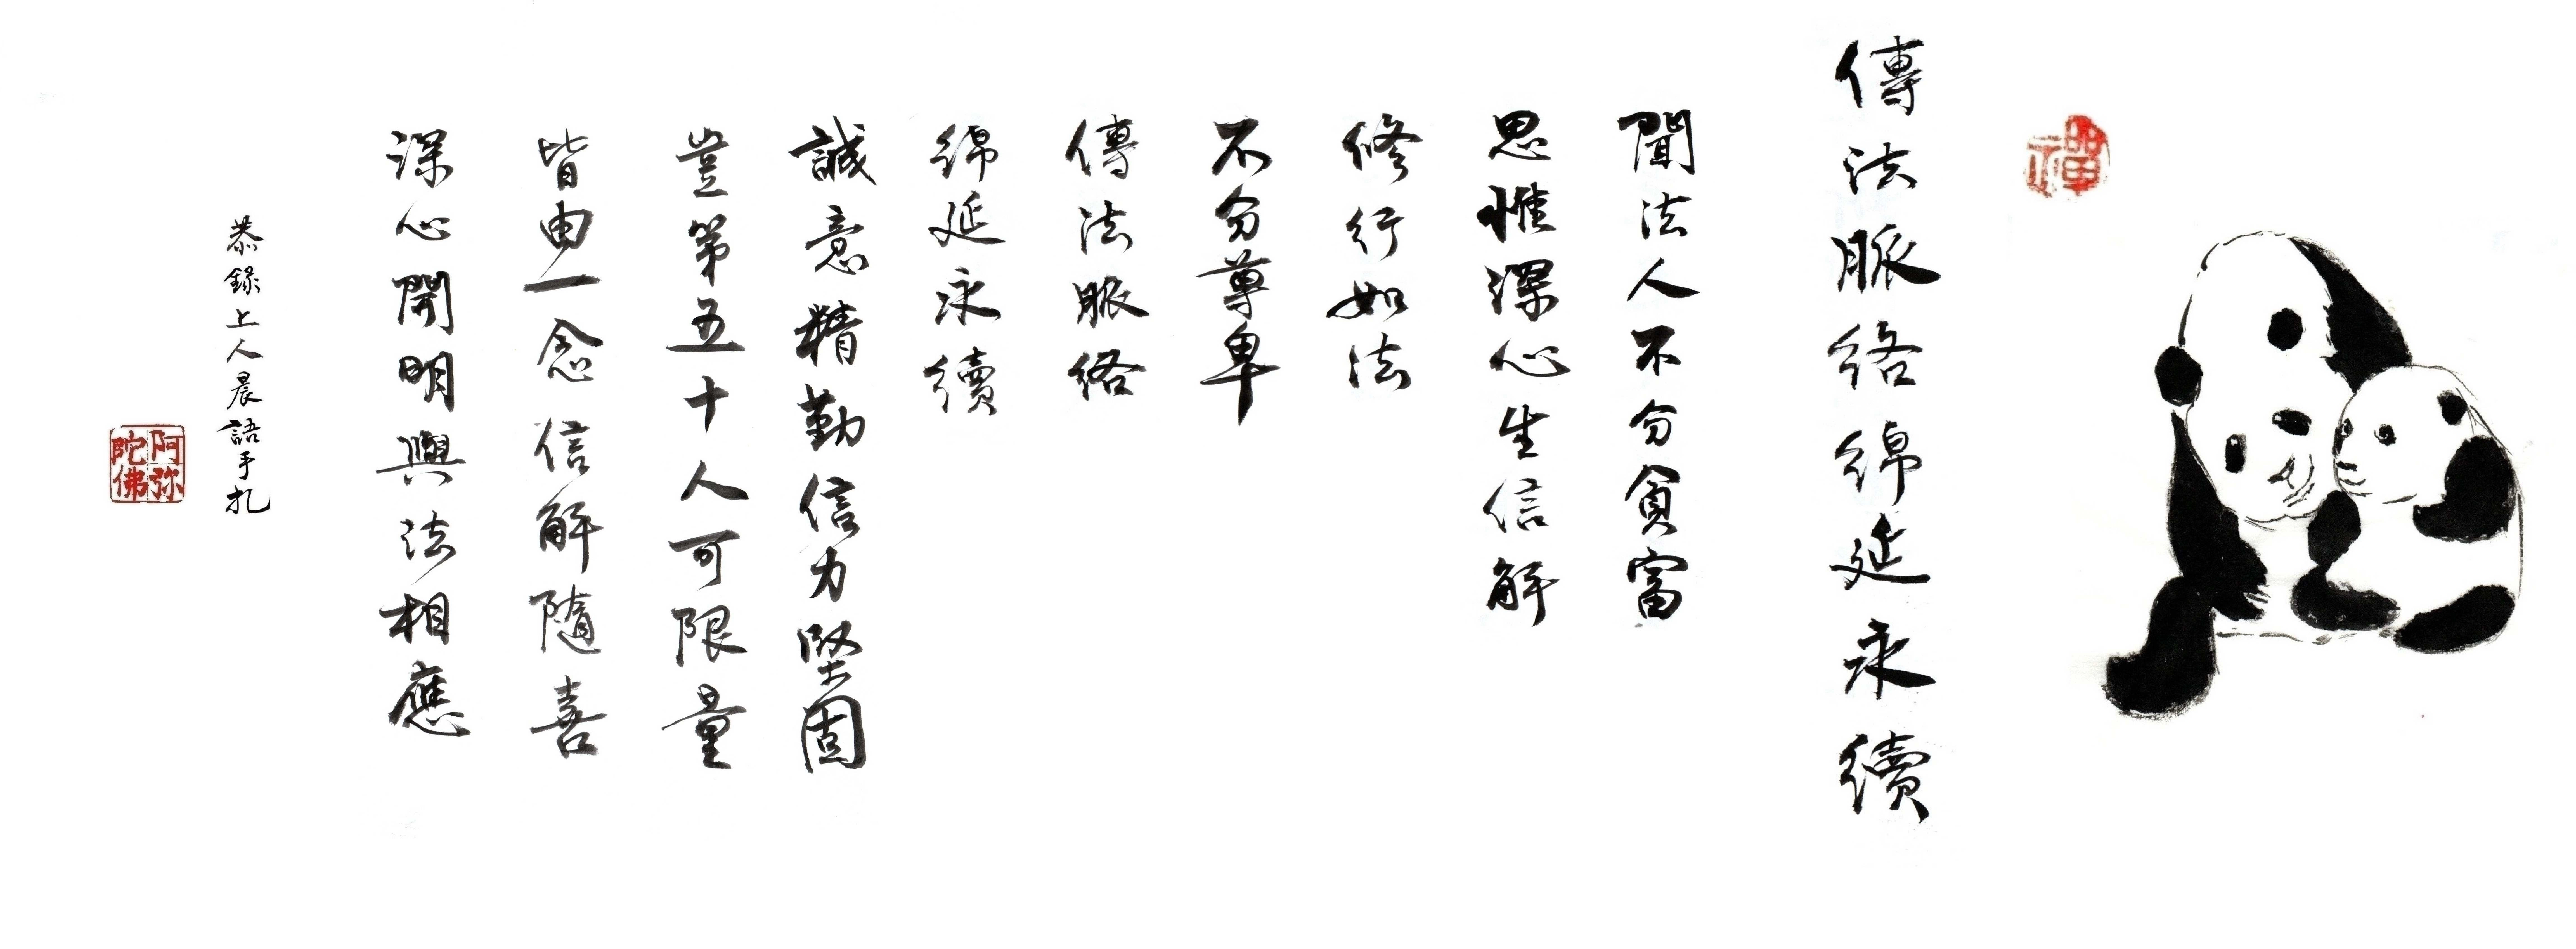 禪
傳法脈絡綿延永續
聞法人不分貧富
思惟深心生信解
修行如法
不分尊卑
傳法脈絡
綿延永續
誠意精勤信力堅固
豈第五十人可限量
皆由一念信解隨喜
深心開明與法相應
恭錄上人晨語手扎
阿弥
陀佛